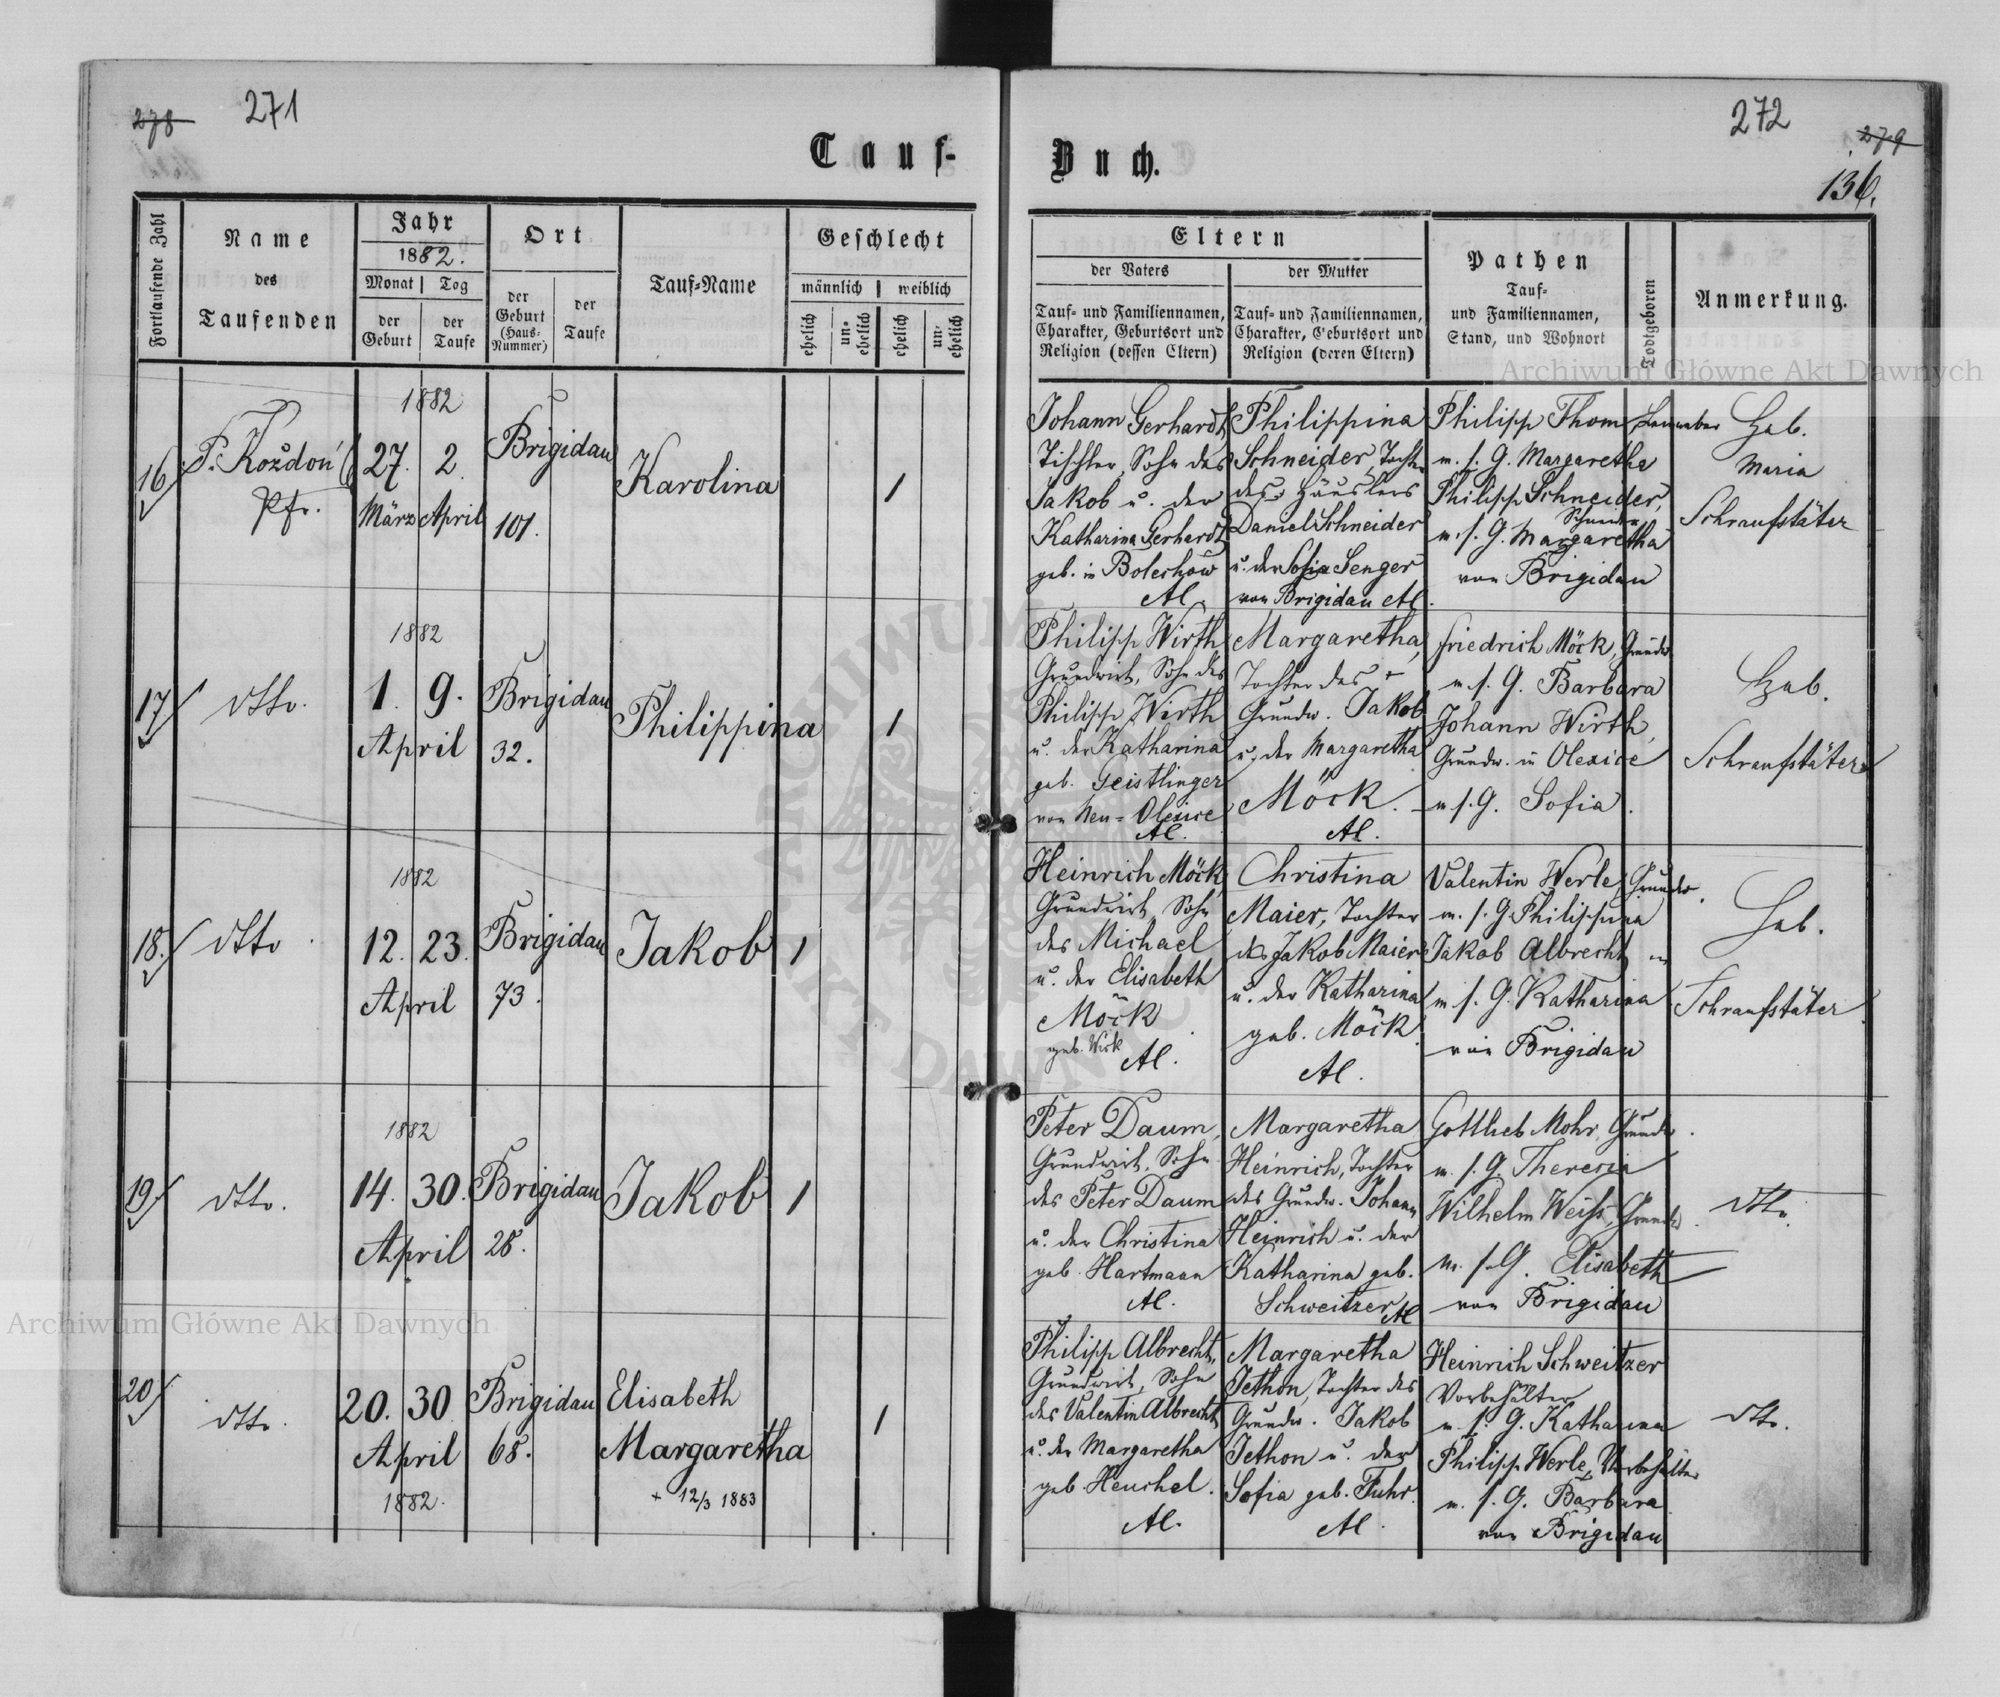 278 271
Tauf-
Fortlaufende Zahl
Name
des
Taufenden
Jahr
1882.
Monat Tag
der Geburt
der Taufe
Ort
der
Geburt
(Haus-
Nummer)
der
Taufe
Tauf-Name
Geschlecht
männlich weiblich
ehelich
un-
ehelich
ehelich
un-
ehelich
16
P. Koždoń
Pfr.
1882
27. 2
März April
Brigidau
101.
Karolina
1
17
dtto.
1882
1. 9.
April
Brigidau
32.
Philippina
1
18.
dtto
1882
12. 23.
April
Brigidau
73.
Jakob
1
19.
dtto.
1882
14. 30.
April
Brigidau
28.
Jakob
1
20
dtto.
20. 30
April
1882.
Brigidau
68.
Elisabeth
Margaretha
+ 12/3 1883
1
272 279
136.
Buch.
Eltern
der Vaters
der Mutter
Tauf- und Familiennamen,
Charakter, Geburtsort und
Religion (dessen Eltern)
Tauf- und Familiennamen,
Charakter, Geburtsort und
Religion (deren Eltern)
Pathen
Tauf-
und Familiennamen,
Stand, und Wohnort
Todtgeboren
Anmerkung.
Johann Gerhardt,
Tischler, Sohn des
Jakob u. der
Katharina Gerhardt
geb. in Bolechow
Al.
Philippina
Schneider, Tochter
des Häuslers
Daniel Schneider
u. der Sofia Senger
von Brigidau Al.
Philipp Thom
m. s. G. Margaretha
Philipp Schneider,
m. s. G. Margaretha
von Brigidau
Heb.
Maria
Schraufstäter
Philipp Wirth
Grundwirt, Sohn des
Philipp Wirth
u. der Katharina
geb. Geistlinger
von Neu-Olexice
Al.
Margaretha,
Tochter des +
Grundw. Jakob
u. der Margaretha
Möck.
Al.
Friedrich Möck, Grundw.
m. s. G. Barbara
Johann Wirth,
Grundw. in Olexice
m s. G. Sofia.
Heb.
Schraufstäter
Heinrich Möck,
Grundwirt, Sohn
des Michael
u. der Elisabeth
Möck
geb. Wirk
Al.
Christina
Maier, Tochter
des Jakob Maier
u. der Katharina
geb. Möck.
Al.
Valentin Werle, Grundw.
m. s. G. Philippina
Jakob Albrecht
m s. G. Katharina
von Brigidau
Heb.
Schraufstäter
Peter Daum,
Grundwirt, Sohn
des Peter Daum
u. der Christina
geb. Hartmann
Al.
Margaretha
Heinrich, Tochter
des Grundw. Johann
Heinrich u. der
Katharina geb.
Schweitzer Al
Gottlieb Mohr, Grundw.
m. s. G. Theresia
Wilhelm Weiss, Grundw.
m. s. G. Elisabeth
von Brigidau
dtto.
Philipp Albrecht,
Grundwirt, Sohn
des Valentin Albrecht
u. der Margaretha
geb. Henchel.
Al.
Margaretha
Jethon, Tochter des
Grundw. Jakob
Jethon u. der
Sofia geb. Fuhr.
Al.
Heinrich Schweitzer
Vorbehälter
m. s. G. Katharina
Philipp Werle, Vorbehälter
m. s. G. Barbara
von Brigidau
dtto.
Archiwum Główne Akt Dawnych
Archiwum Główne Akt Dawnych
ARCHIWUM
AKT DAWNYCH